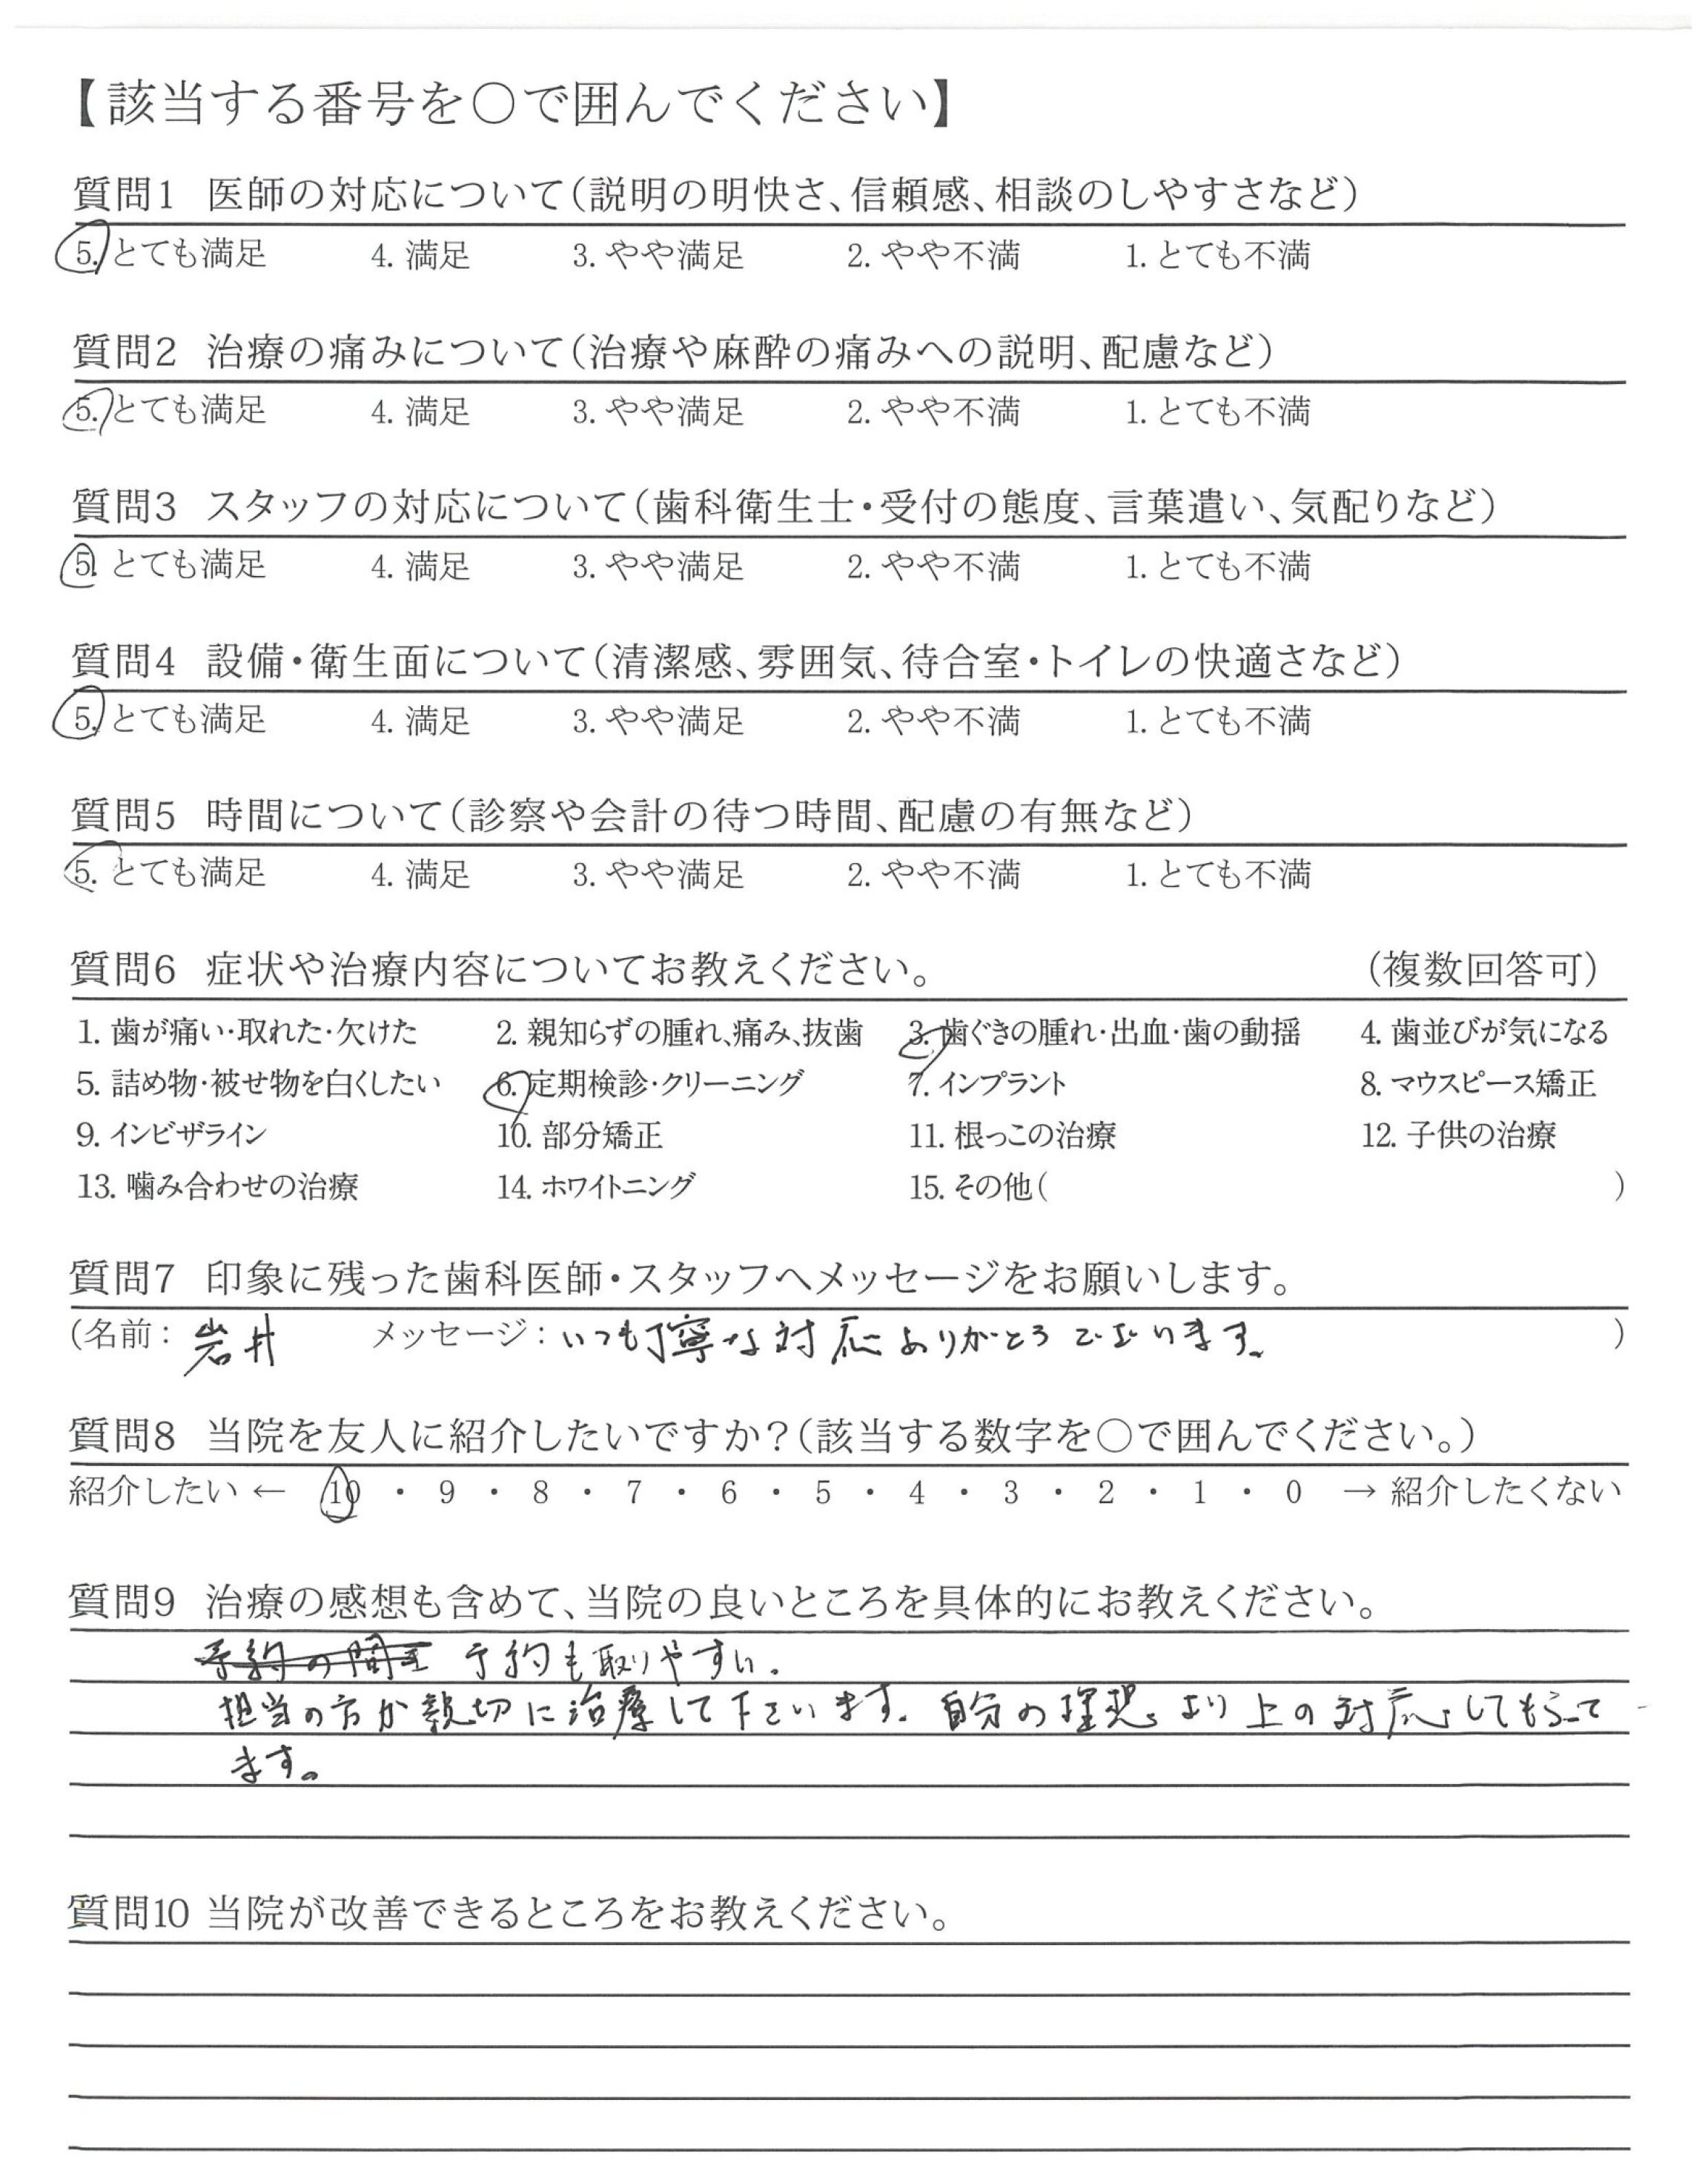 【該当する番号を〇で囲んでください】
質問1 医師の対応について(説明の明快さ、信頼感、相談のしやすさなど)
5. とても満足 4. 満足 3. やや満足 2. やや不満 1. とても不満
質問2 治療の痛みについて(治療や麻酔の痛みへの説明、配慮など)
5. とても満足 4. 満足 3. やや満足 2. やや不満 1. とても不満
質問3 スタッフの対応について(歯科衛生士・受付の態度、言葉遣い、気配りなど)
5. とても満足 4. 満足 3. やや満足 2. やや不満 1. とても不満
質問4 設備・衛生面について(清潔感、雰囲気、待合室・トイレの快適さなど)
5. とても満足 4. 満足 3. やや満足 2. やや不満 1. とても不満
質問5 時間について(診察や会計の待つ時間、配慮の有無など)
5. とても満足 4. 満足 3. やや満足 2. やや不満 1. とても不満
質問6 症状や治療内容についてお教えください。 (複数回答可)
1. 歯が痛い・取れた・欠けた 2. 親知らずの腫れ、痛み、抜歯 3. 歯ぐきの腫れ・出血・歯の動揺 4. 歯並びが気になる
5. 詰め物・被せ物を白くしたい 6. 定期検診・クリーニング 7. インプラント 8. マウスピース矯正
9. インビザライン 10. 部分矯正 11. 根っこの治療 12. 子供の治療
13. 噛み合わせの治療 14. ホワイトニング 15. その他( )
質問7 印象に残った歯科医師・スタッフへメッセージをお願いします。
(名前: 岩井 メッセージ: いつも丁寧な対応ありがとうございます。 )
質問8 当院を友人に紹介したいですか?(該当する数字を〇で囲んでください。)
紹介したい ← 10 ・ 9 ・ 8 ・ 7 ・ 6 ・ 5 ・ 4 ・ 3 ・ 2 ・ 1 ・ 0 → 紹介したくない
質問9 治療の感想も含めて、当院の良いところを具体的にお教えください。
予約の間 予約も取りやすい。
担当の方が親切に治療して下さいます。自分の理想より上の対応してもらって
ます。
質問10 当院が改善できるところをお教えください。